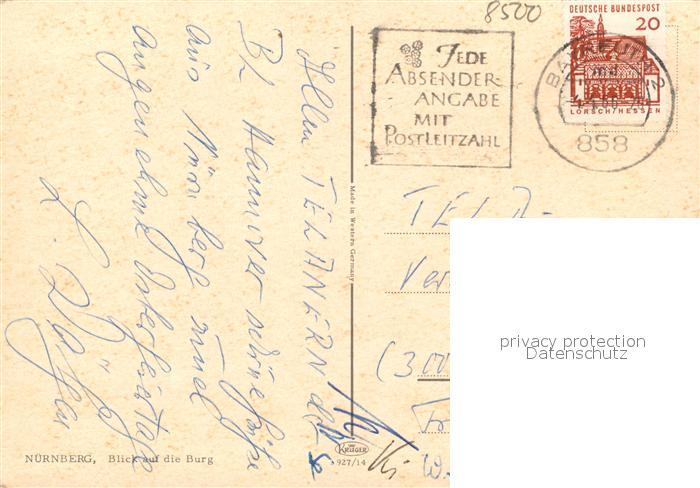 8500
DEUTSCHE BUNDESPOST
20
LORSCH/HESSEN
JEDE
ABSENDER-
ANGABE
MIT
POSTLEITZAHL
BAYREUTH 2
858
Allen TELANERN der
BL Hannover schöne Grüße
aus Nürnberg und
angenehme Osterfeiertage
Made in Western Germany
TELA-
Ver
(300
privacy protection
Datenschutz
NÜRNBERG, Blick auf die Burg
KRÜGER
927/14